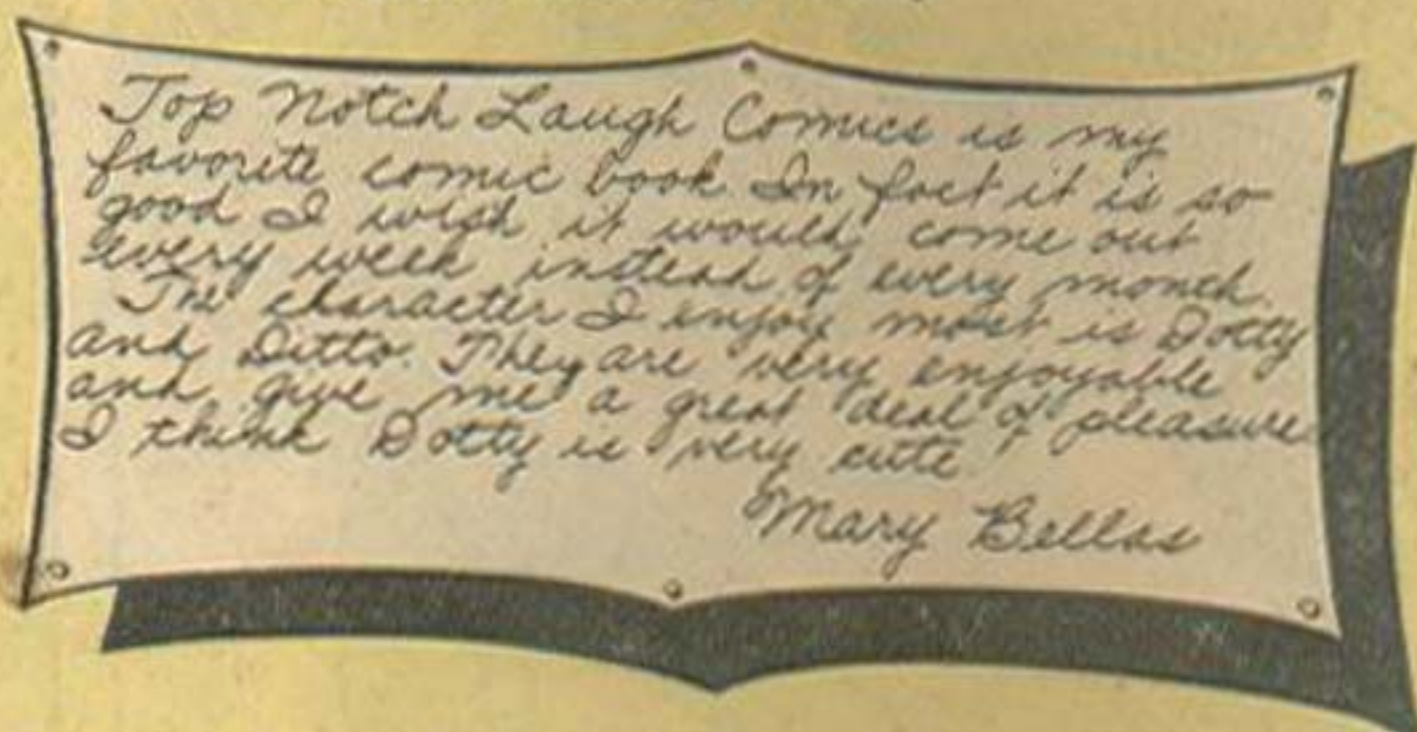 Top Notch Laugh Comics is my
favorite comic book. In fact it is so
good I wish it would come out
every week instead of every month.
The character I enjoy most is Dotty
and Ditto. They are very enjoyable
and give me a great deal of pleasure
I think Dotty is very cute.
Mary Bellas